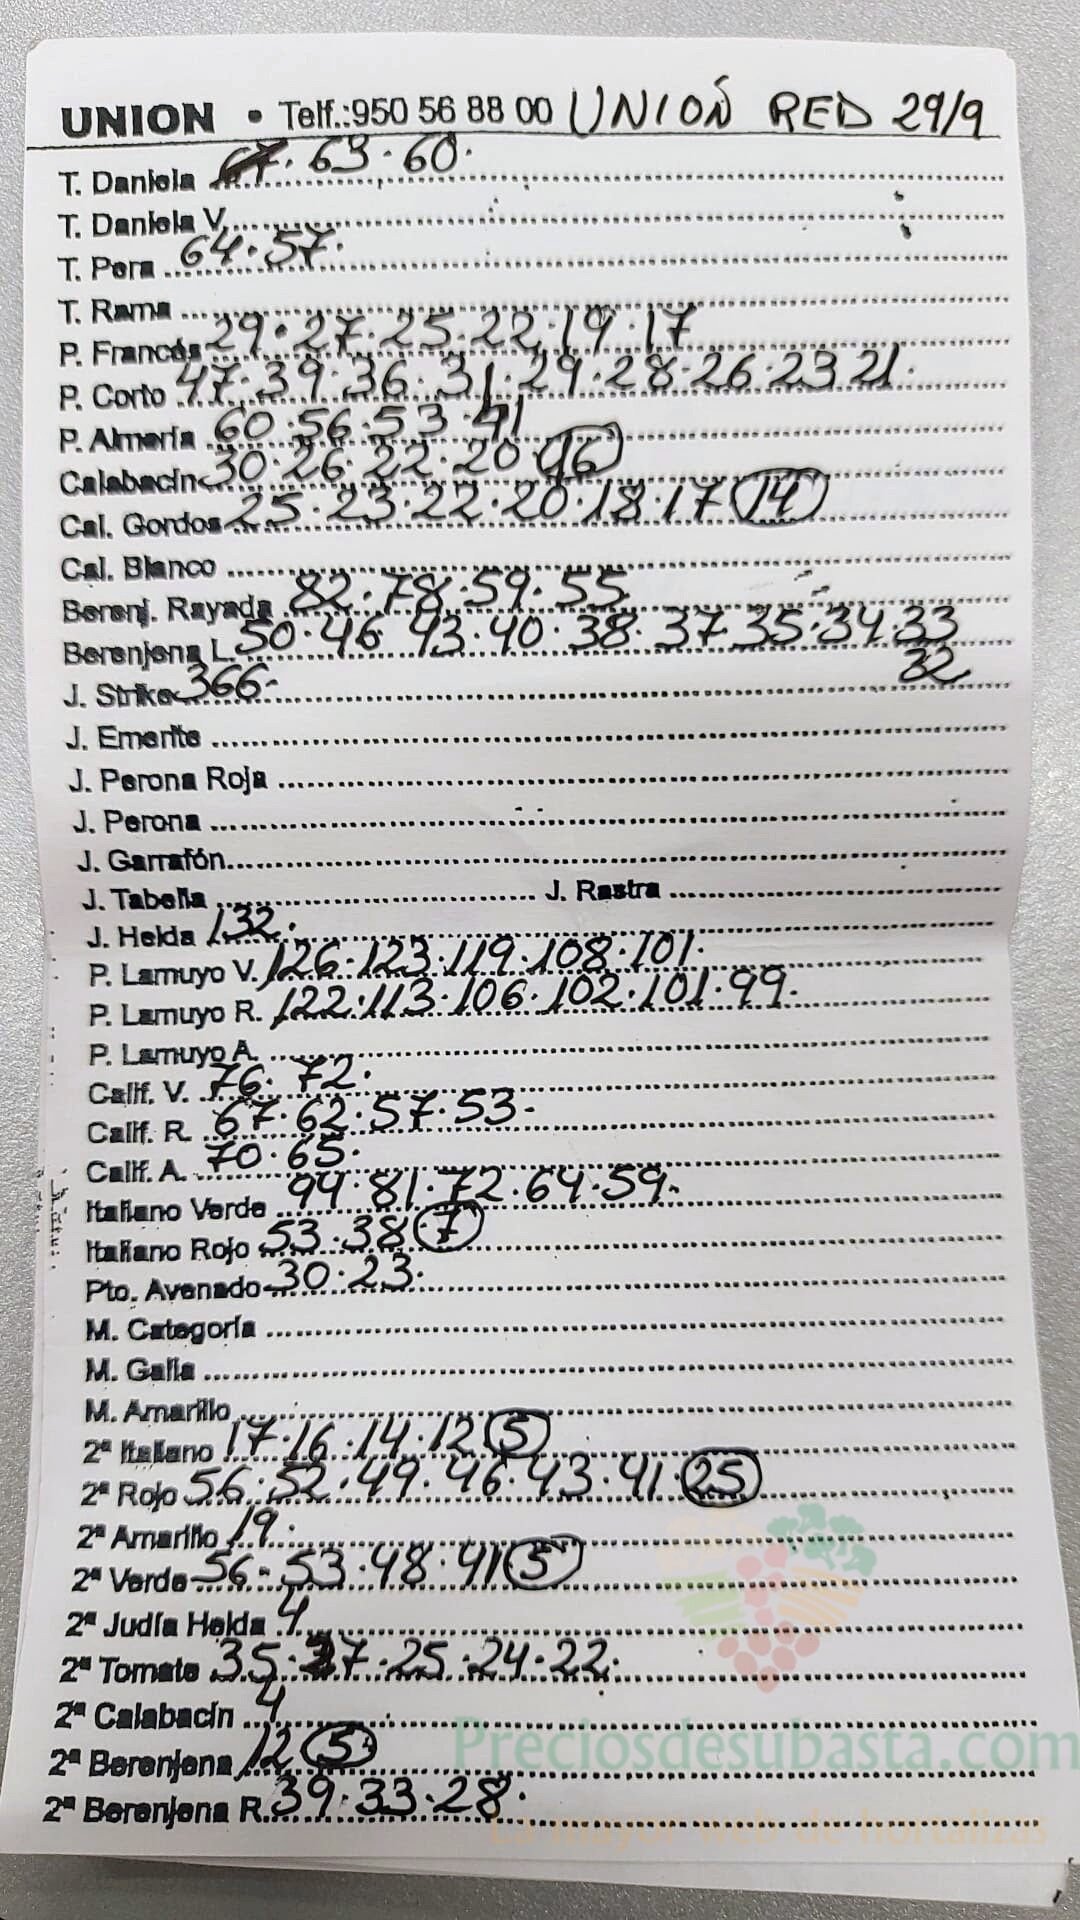 UNION • Telf.:950 56 88 00 UNIÓN RED 29/9
T. Daniela 67·63·60·
T. Daniela V.
T. Pera 64·57·
T. Rama
P. Francés 29·27·25·22·19·17
P. Corto 47·39·36·31·29·28·26·23 21·
P. Almería 60·56·53·41
Calabacín 30·26·22·20·16
Cal. Gordos 25·23·22·20·18·17 14
Cal. Blanco
Berenj. Rayada 82·78·59·55
Berenjena L. 50·46 43·40·38·37 35·34·33
32
J. Strike 366·
J. Emerite
J. Perona Roja
J. Perona
J. Garrafón
J. Tabella J. Rastra
J. Helda 132·
P. Lamuyo V. 126·123·119·108·101·
P. Lamuyo R. 122·113·106·102·101·99·
P. Lamuyo A.
Calif. V. 76·72·
Calif. R. 67·62·57·53·
Calif. A. 70·65·
Italiano Verde 94·81·72·64·59·
Italiano Rojo 53·38·7
Pto. Avenado 30·23·
M. Categoría
M. Galia
M. Amarillo
2ª Italiano 17·16·14·12 5
2ª Rojo 56·52·49·46·43·41·25
2ª Amarillo 19·
2ª Verde 56·53·48·41 5
2ª Judía Helda 4
2ª Tomate 35·27·25·24·22·
2ª Calabacín 4
2ª Berenjena 12 5
2ª Berenjena R. 39·33·28·
Preciosdesubasta.com
La mayor web de hortalizas